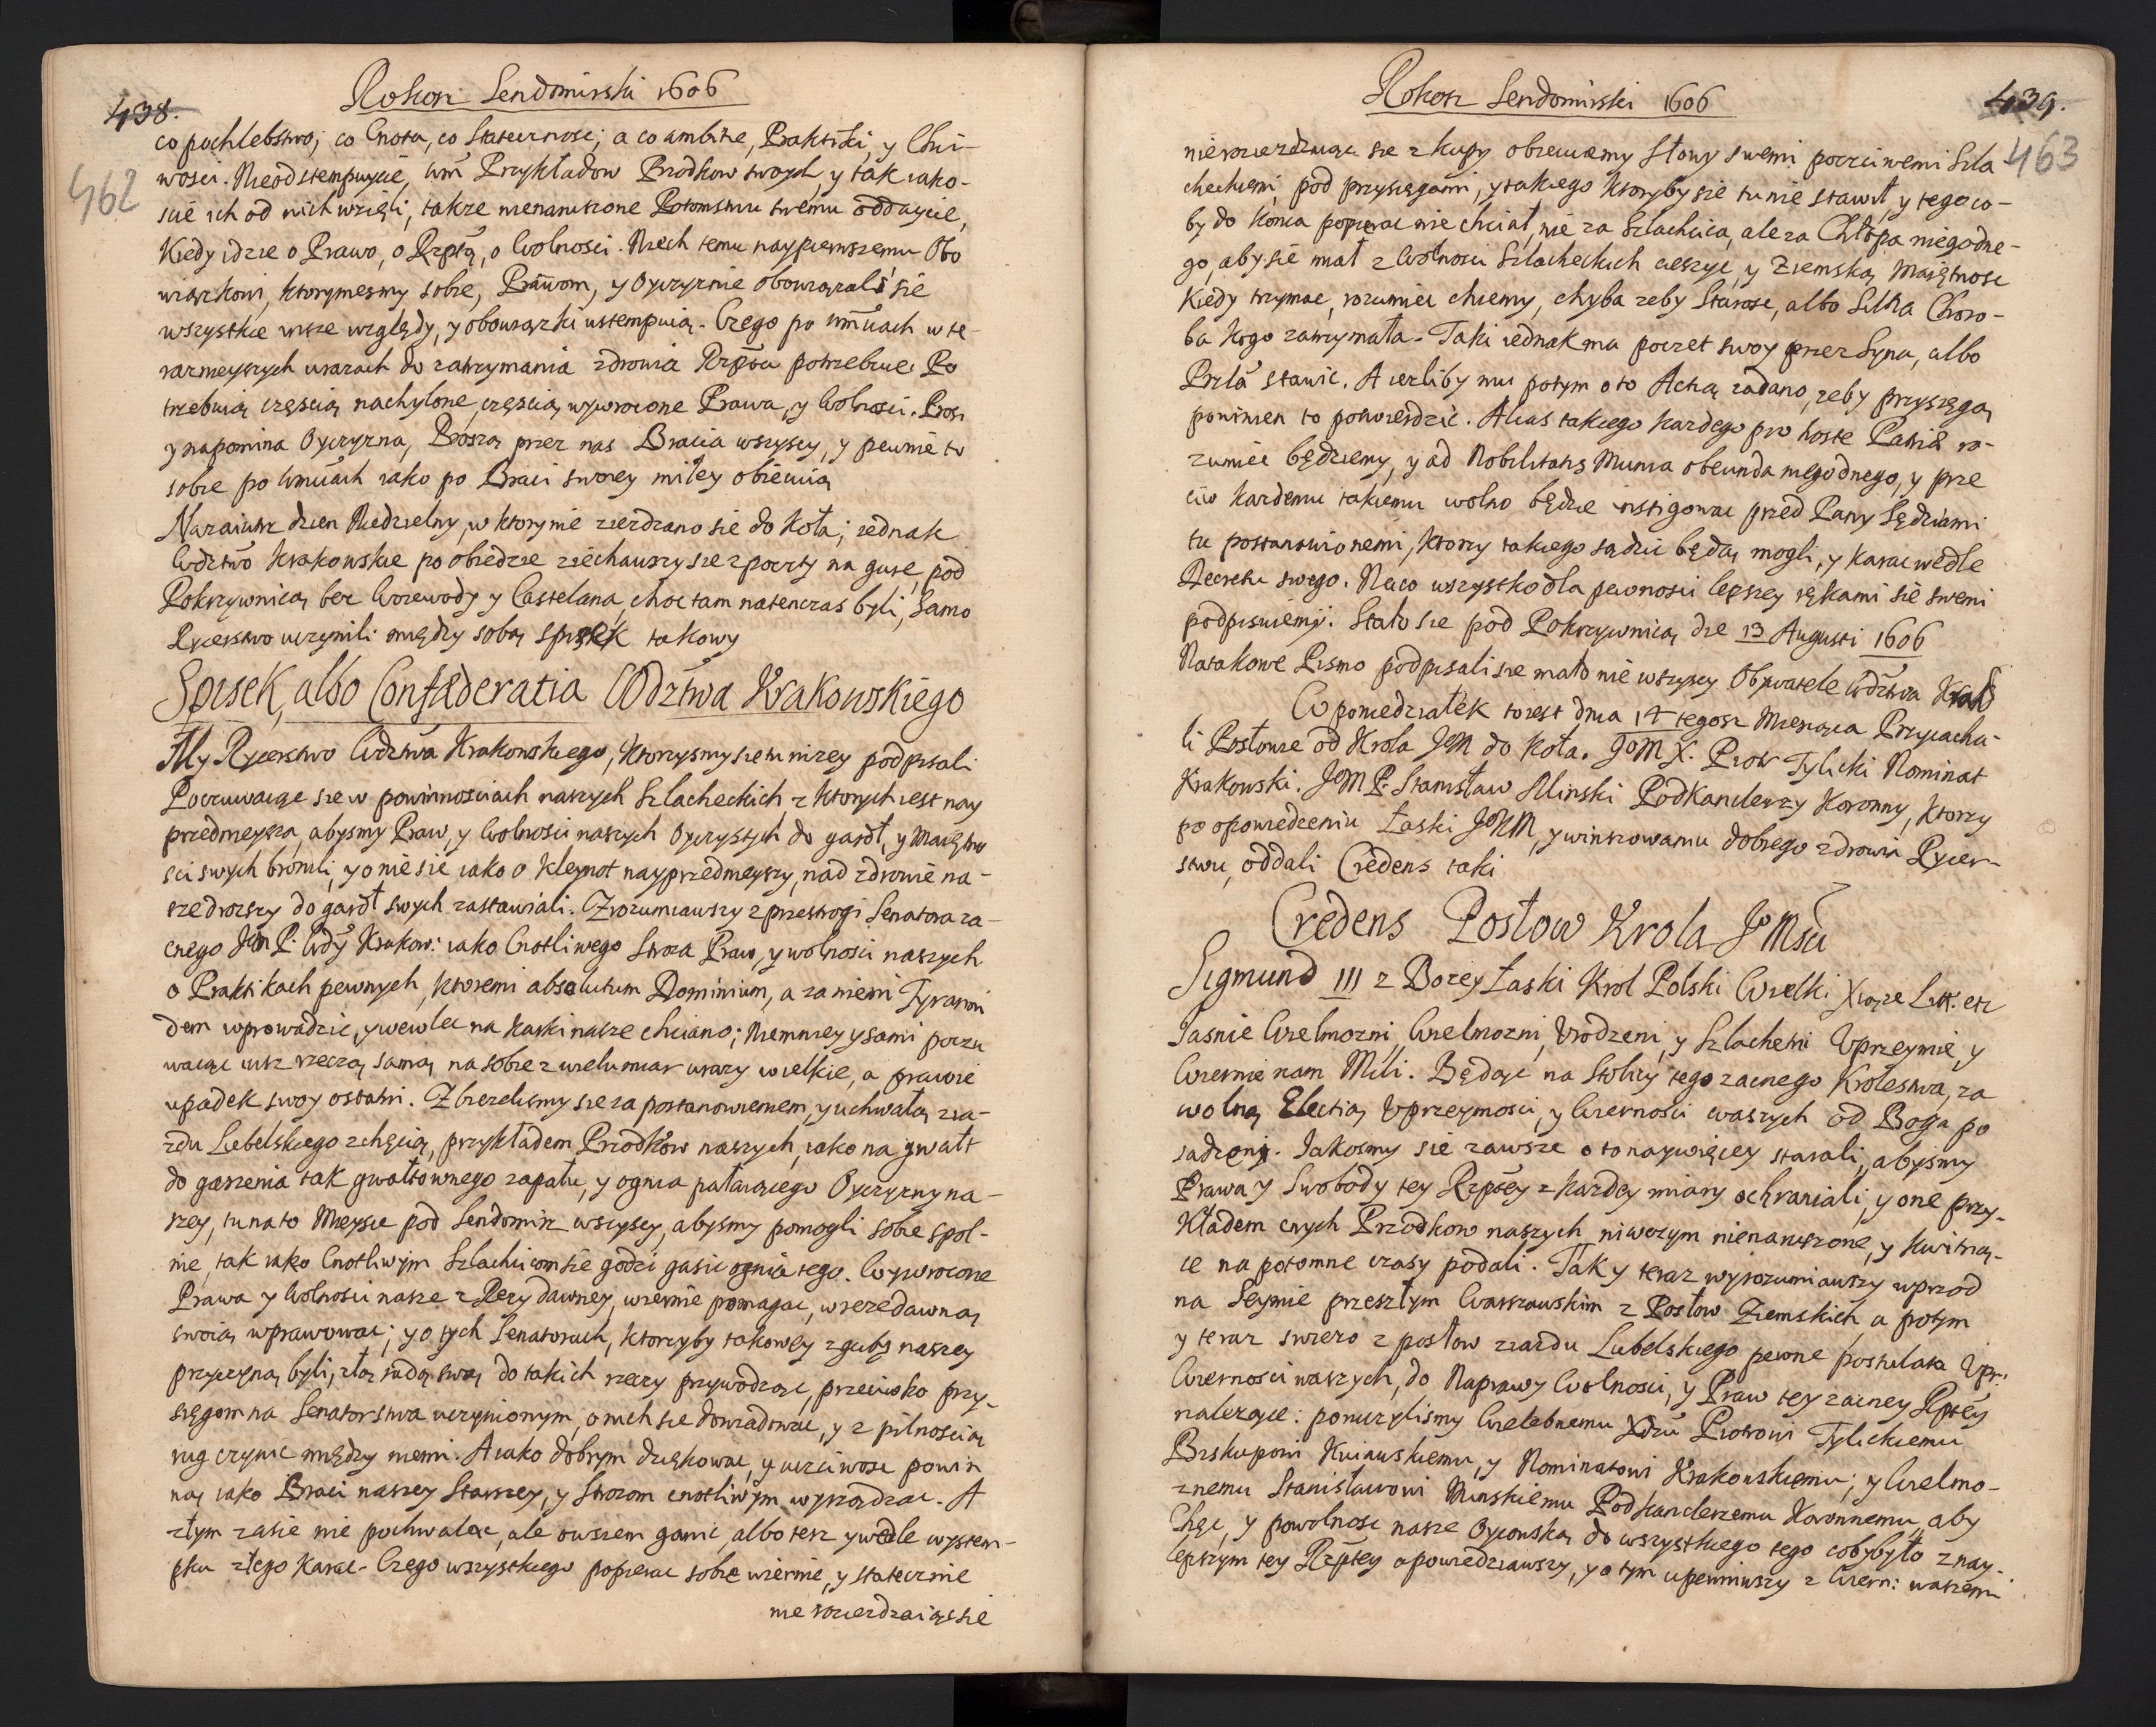 438.
Rokosz Sendomirski 1606
462
co pochlebstwo; co Cnota, co Stateczność; a co ambitie, Praktiki, y Chci-
wości. Nieodstempuycie, wm Przykładow Przodkow swoych, y tak iako-
scie ich od nich wzięli, takze nienaruszone Potomstwu swemu oddaycie,
Kiedy idzie o Prawo, o Rzptą, o Wolności. Niech temu naypierwszemu Obo
wiązkowi, ktorymesmy sobie, Prawom, y Oyczyznie obowiązali sie
wszystkie insze względy, y obowiązki ustempuią. Czego po wmciach w te-
raznieyszych urazach do zatrzymania zdrowia Rzptu potrzebuie. Po
trzebuią częscią nachylone, częscią wywrocone Prawa, y Wolności. Prosi
y napomina Oyczyzna, Proszą przez nas Bracia wszyscy, y pewnie to
sobie po wmciach iako po Braci swoiey miłey obiecuią
Nazaiutrz dzien Niedzielny, w ktory nie ziezdzano sie do Koła; iednak
Wdztwo Krakowskie po obiedzie ziechawszy sie z poczty na gurę pod
Pokrzywnicą bez Woiewody y Castelana, choc tam natenczas byli, Samo
Rycerstwo uczynili między sobą spisek takowy
Spisek, albo Confæderatia Wdztwa Krakowskiego
My Rycerstwo Wdztwa Krakowskiego, ktorzysmy sie tu nizey podpisali
Poczuwaiąc sie w powinnościach naszych Szlacheckich z ktorych iest nay
przednieysza, abysmy Praw, y Wolności naszych Oyczystych do gardł, y Maiętno
sci swych bronili, y o nie sie iako o Kleynot nayprzednieyszy, nad zdrowie na-
sze drozszy do gardł swych zastawiali. Zrozumiawszy z przestrogi Senatora za-
cnego Jm P. Wdy Krakow: iako Cnotliwego Stroza Praw, y wolności naszych
o Praktikach pewnych, ktoremi absolutum Dominium, a za niemi Tyranni
dem wprowadzic, y wewlec na karki nasze chciano; Niemniey y sami poczu
waiąc iusz rzeczą samą na sobie z wielu miar urazy wielkie, a prawie
upadek swoy ostatni. Zbieralismy sie za postanowieniem, y uchwałą zia-
zdu Lubelskiego z chęcią, przykładem Przodkow naszych, iako na gwałt
do gaszenia tak gwałtownego zapału, y ognia pałaiącego Oyczyzny na-
szey, tu na to Mieysce pod Sendomirz wszyscy, abysmy pomogli sobie spol-
nie, tak iako Cnotliwym Szlachcicom sie godzi gasic ognia tego. Wywrocone
Prawa y Wolności nasze z Rezy dawney, wiernie pomagac, w rzezedawną
swoią wprawowac; y o tych Senatorach, ktorzyby takowey zguby naszey
przyczyną byli, złą radą swą do takich rzeczy przywodząc, przeciwko przy-
sięgom na Senatorstwa uczynionym, o nich sie dowiadowac, y z pilnością
rug czynic między niemi. A iako dobrym dziękowac, y uczciwosc powin
ną iako Braci naszey Starszey, y Strozom cnotliwym wyrządzac. A
złym zasie nie pochwalac, ale owszem ganic, albo tesz y wedle wystem-
pku złego karac. Czego wszystkiego popierac sobie wiernie, y statecznie
nie rozierdzaiąc sie
439.
Rokosz Sendomirski 1606
463
nierozierdzaiąc sie z kupy obiecuiemy Słowy swemi poczciwemi Szla
checkiemi pod przysięgami, y takiego ktoryby sie tu nie stawił, y tego co-
by do konca popierac nie chciał, nie za Szlachcica, ale za Chłopa niegodne-
go, aby sie miał z Wolności Szlacheckich cieszyc, y Ziemską Maiętnosc
kiedy trzymac, rozumiec chcemy, chyba zeby Starosc, albo Silna Choro-
ba kogo zatrzymała. Taki iednak ma poczet swoy przez Syna, albo
Przla stawic. A iezliby mu potym o to Actią zadano, zeby przysięgą
powinien to potwierdzic. Alias takiego kazdego pro hoste Patriæ ro-
zumiec będziemy, y ad Nobilitatis Munia obeunda niegodnego, y prze
ciw kazdemu takiemu wolno będzie instigowac przed Pany Sędziami
tu postanowionemi, ktorzy takiego sądzic będą mogli, y karac wedle
Decretu swego. Naco wszystko dla pewnosci lepszey rękami sie swemi
podpisuiemy. Stało sie pod Pokrzywnicą die 13 Augusti 1606
Natakowe Pismo podpisali sie mało nie wszyscy Obywatele Wdztwa Krak
W poniedziałek to iest dnia 14 tegosz Miesiąca Przyiacha-
li Posłowie od Krola JM do Koła. JoM X. Piotr Tylicki Nominat
Krakowski. JoM P. Stanisław Minski Podkanclerzy Koronny, ktorzy
po opowiedzeniu Łaski JKM, y winszowaniu dobrego zdrowia Rycer-
stwu, oddali Credens taki
Credens Posłow Krola Jo Msci
Sigmund III z Bozey Łaski Krol Polski Wielki Xiąze Litt. etc
Jasnie Wielmozni, Wielmozni, Urodzeni, y Szlachetni Uprzeymie, y
Wiernie nam Mili. Będąc na Stolicy tego zacnego Krolestwa, za
wolną Electią Uprzeymosci, y Wiernosci waszych od Boga po
sadzeni. Jakosmy sie zawsze o to naywięcey starali, abysmy
Prawa y Swobody tey Rzptey z kazdey miary ochraniali, y one przy-
kładem cnych Przodkow naszych niwczym nienaruszone, y kwitną-
ce na potomne czasy podali. Tak y teraz wyrozumiawszy wprzod
na Seymie przeszłym Warszawskim z Posłow Ziemskich, a potym
y teraz swiezo z posłow ziazdu Lubelskiego pewne postulata Upr:
Wiernosci waszych, do Naprawy Wolności, y Praw tey zacney Rptey
nalezące: poruczylismy Wielebnemu Xdzu Piotrowi Tylickiemu
Biskupowi Kuiawskiemu, y Nominatowi Krakowskiemu; y Wielmo-
znemu Stanisławowi Minskiemu Podkanclerzemu Koronnemu, aby
Chęc, y powolnosc nasze Oycowską do wszystkiego tego cobybyło z nay-
lepszym tey Rzptey opowiedziawszy, y o tym upewniwszy z Wiern: waszemi